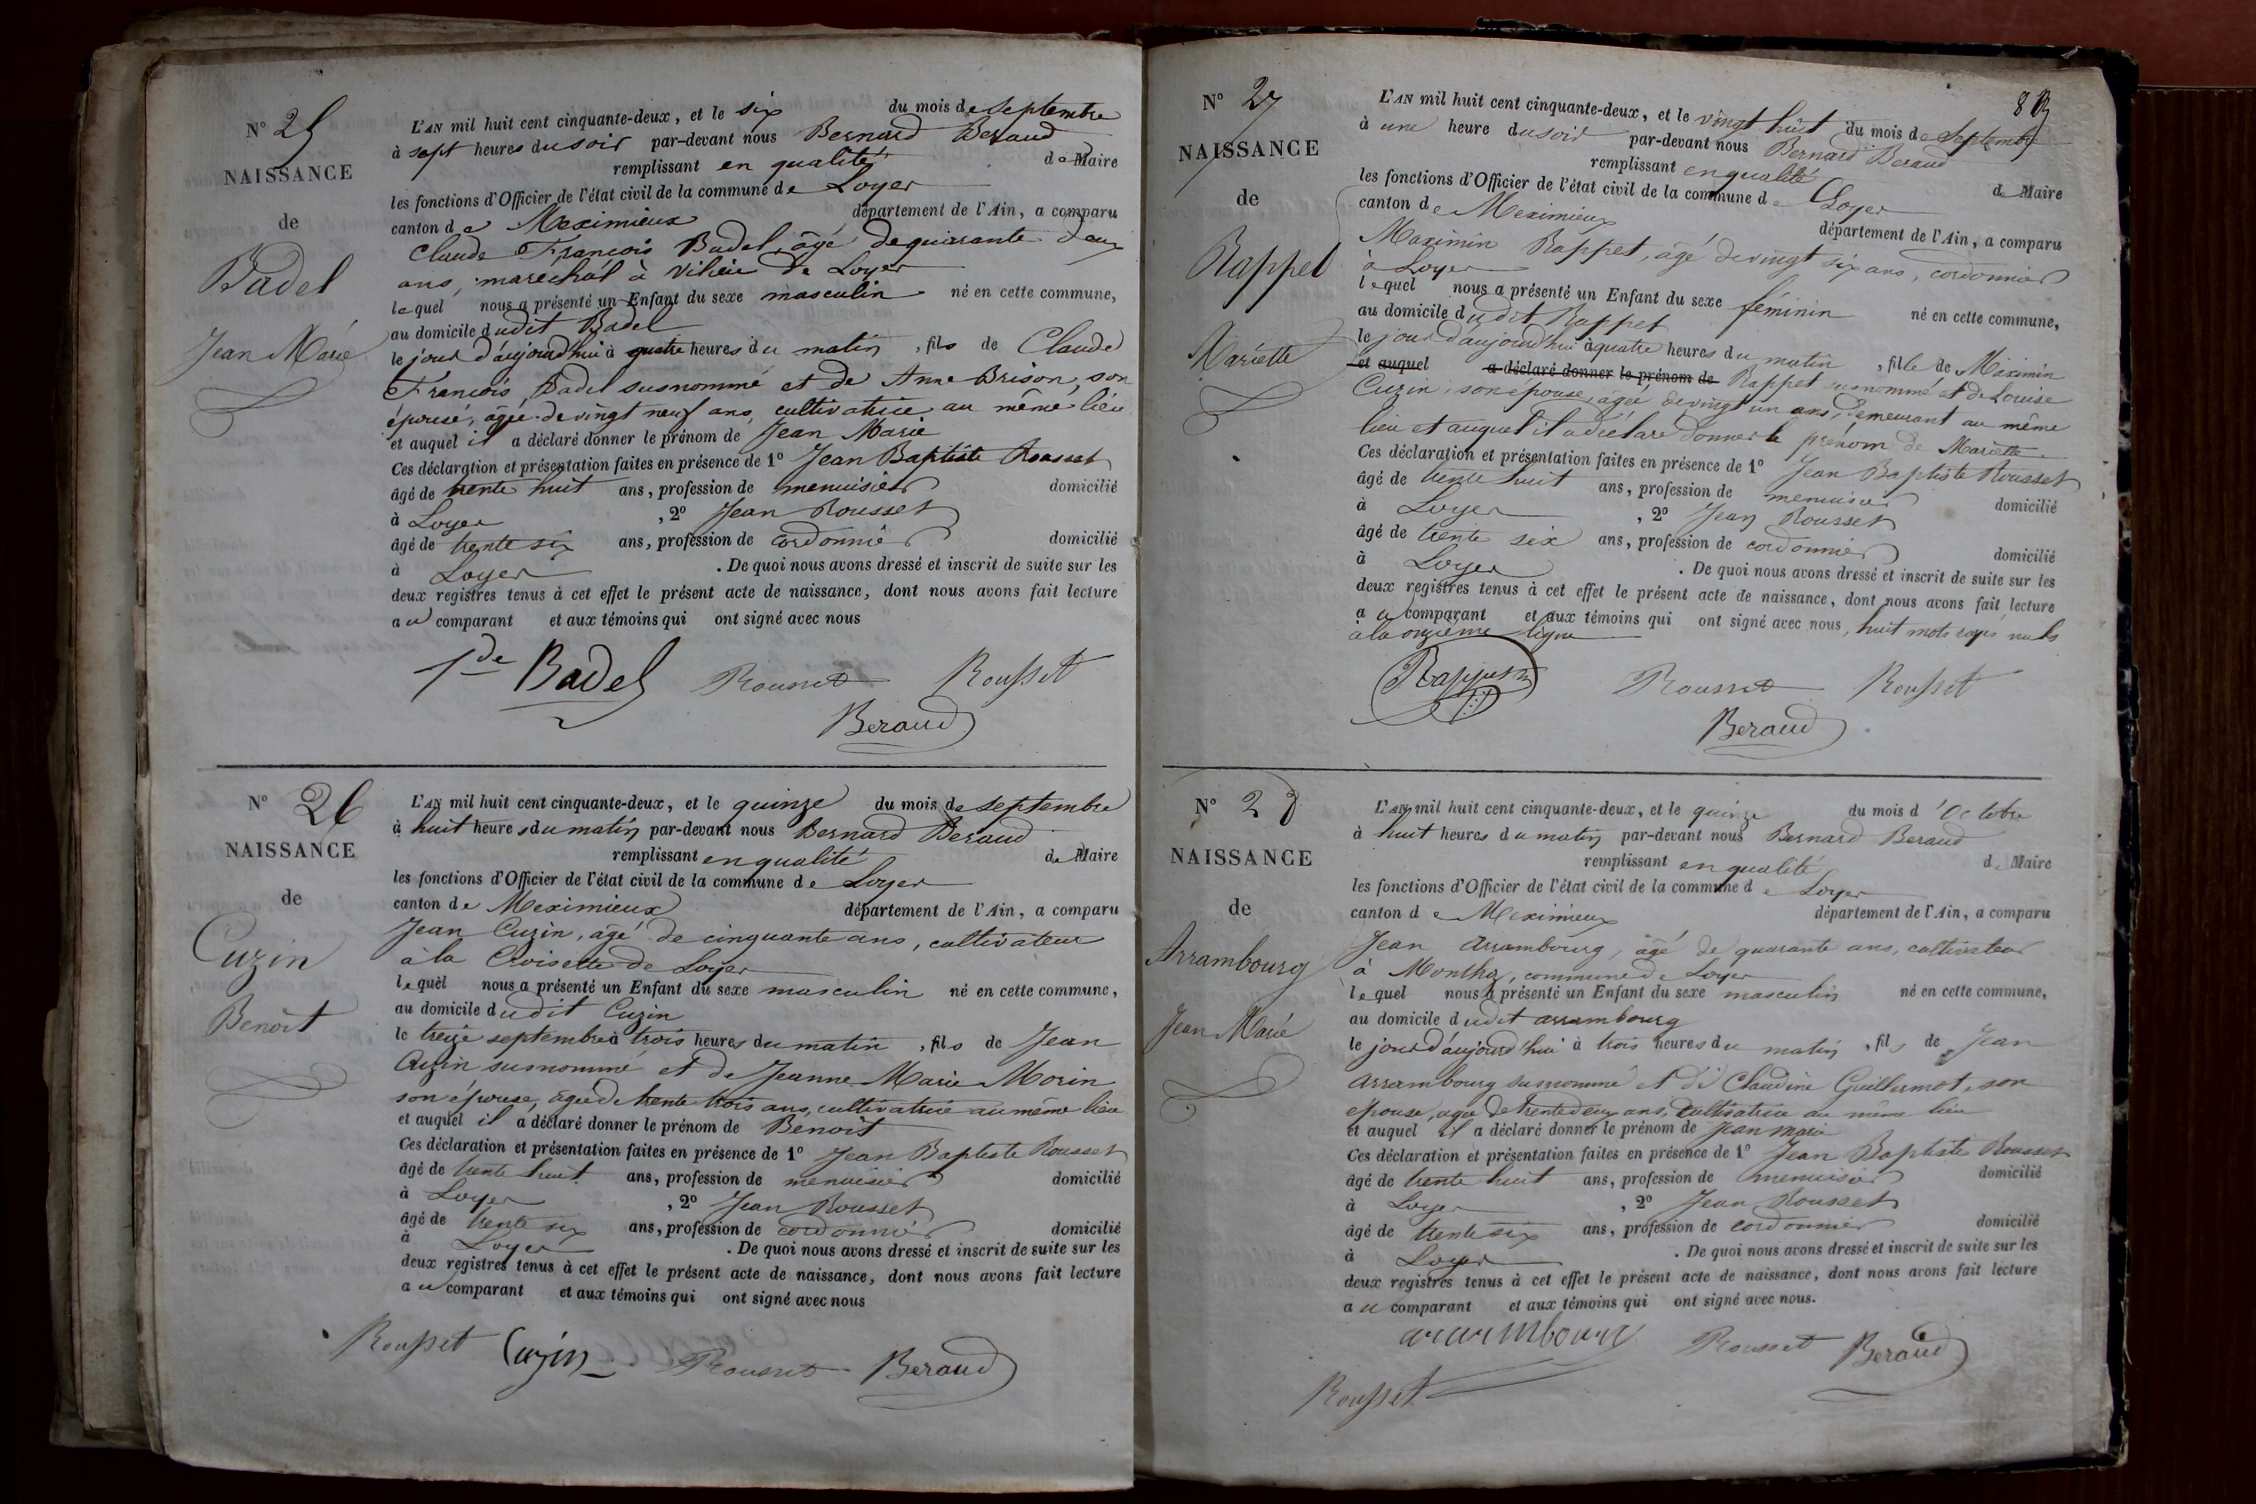 N° 25
NAISSANCE
de
Badel
Jean Marie
L'AN mil huit cent cinquante-deux, et le six du mois de septembre
à sept heures du soir par-devant nous Bernard Beraud
remplissant en qualité de Maire
les fonctions d'Officier de l'état civil de la commune de Loyer
canton de Meximieux département de l'Ain, a comparu
Claude François Badel, âgé de quarante deux
ans, maréchal à Vilieu de Loyer
lequel nous a présenté un Enfant du sexe masculin né en cette commune,
au domicile dudit Badel
le jour d'aujourd'hui à quatre heures du matin, fils de Claude
François Badel susnommé et de Anne Brison, son
épouse, agée de vingt neuf ans, cultivatrice au même lieu
et auquel il a déclaré donner le prénom de Jean Marie
Ces déclaration et présentation faites en présence de 1° Jean Baptiste Rousset
âgé de trente huit ans, profession de menuisier domicilié
à Loyer, 2° Jean Rousset
âgé de trente six ans, profession de cordonnier domicilié
à Loyer. De quoi nous avons dressé et inscrit de suite sur les
deux registres tenus à cet effet le présent acte de naissance, dont nous avons fait lecture
au comparant et aux témoins qui ont signé avec nous
Badel Rousset Rousset
Beraud
N° 26
NAISSANCE
de
Cuzin
Benoit
L'AN mil huit cent cinquante-deux, et le quinze du mois de septembre
à huit heures du matin par-devant nous Bernard Beraud
remplissant en qualité de Maire
les fonctions d'Officier de l'état civil de la commune de Loyer
canton de Meximieux département de l'Ain, a comparu
Jean Cuzin, âgé de cinquante ans, cultivateur
à la Croisette de Loyer
lequel nous a présenté un Enfant du sexe masculin né en cette commune,
au domicile dudit Cuzin
le treize septembre à trois heures du matin, fils de Jean
Cuzin susnommé et de Jeanne Marie Morin
son épouse, agée de trente trois ans, cultivatrice au même lieu
et auquel il a déclaré donner le prénom de Benoit
Ces déclaration et présentation faites en présence de 1° Jean Baptiste Rousset
âgé de trente huit ans, profession de menuisier domicilié
à Loyer, 2° Jean Rousset
âgé de trente six ans, profession de cordonnier domicilié
à Loyer. De quoi nous avons dressé et inscrit de suite sur les
deux registres tenus à cet effet le présent acte de naissance, dont nous avons fait lecture
au comparant et aux témoins qui ont signé avec nous
Rousset Cuzin Rousset Beraud
N° 27
NAISSANCE
de
Rappet
Mariette
L'AN mil huit cent cinquante-deux, et le vingt huit du mois de Septembre
à une heure du soir par-devant nous Bernard Beraud
remplissant en qualité de Maire
les fonctions d'Officier de l'état civil de la commune de Loyer
canton de Meximieux département de l'Ain, a comparu
Maximin Rappet, âgé de vingt six ans, cordonnier
à Loyer
lequel nous a présenté un Enfant du sexe féminin né en cette commune,
au domicile dudit Rappet
le jour d'aujourd'hui à quatre heures du matin, fille de Maximin
et auquel a déclaré donner le prénom de Rappet susnommé et de Louise
Cuzin, son épouse, agée de vingt un ans, demeurant au même
lieu et auquel il a déclaré donner le prénom de Mariette
Ces déclaration et présentation faites en présence de 1° Jean Baptiste Rousset
âgé de trente huit ans, profession de menuisier domicilié
à Loyer, 2° Jean Rousset
âgé de trente six ans, profession de cordonnier domicilié
à Loyer. De quoi nous avons dressé et inscrit de suite sur les
deux registres tenus à cet effet le présent acte de naissance, dont nous avons fait lecture
au comparant et aux témoins qui ont signé avec nous, huit mots rayés nuls
à la onzième ligne
Rappet Rousset Rousset
Beraud
N° 28
NAISSANCE
de
Arrambourg
Jean Marie
L'AN mil huit cent cinquante-deux, et le quinze du mois d'Octobre
à huit heures du matin par-devant nous Bernard Beraud
remplissant en qualité de Maire
les fonctions d'Officier de l'état civil de la commune de Loyer
canton de Meximieux département de l'Ain, a comparu
Jean Arrambourg, âgé de quarante ans, cultivateur
à Monthoz, commune de Loyer
lequel nous a présenté un Enfant du sexe masculin né en cette commune,
au domicile dudit arrambourg
le jour d'aujourd'hui à trois heures du matin, fils de Jean
arrambourg susnommé et de Claudine Guillermot, son
épouse, agée de trente deux ans, cultivatrice au même lieu
et auquel il a déclaré donner le prénom de Jean marie
Ces déclaration et présentation faites en présence de 1° Jean Baptiste Rousset
âgé de trente huit ans, profession de menuisier domicilié
à Loyer, 2° Jean Rousset
âgé de trente six ans, profession de cordonnier domicilié
à Loyer. De quoi nous avons dressé et inscrit de suite sur les
deux registres tenus à cet effet le présent acte de naissance, dont nous avons fait lecture
au comparant et aux témoins qui ont signé avec nous.
ararmbourg Rousset Beraud
Rousset